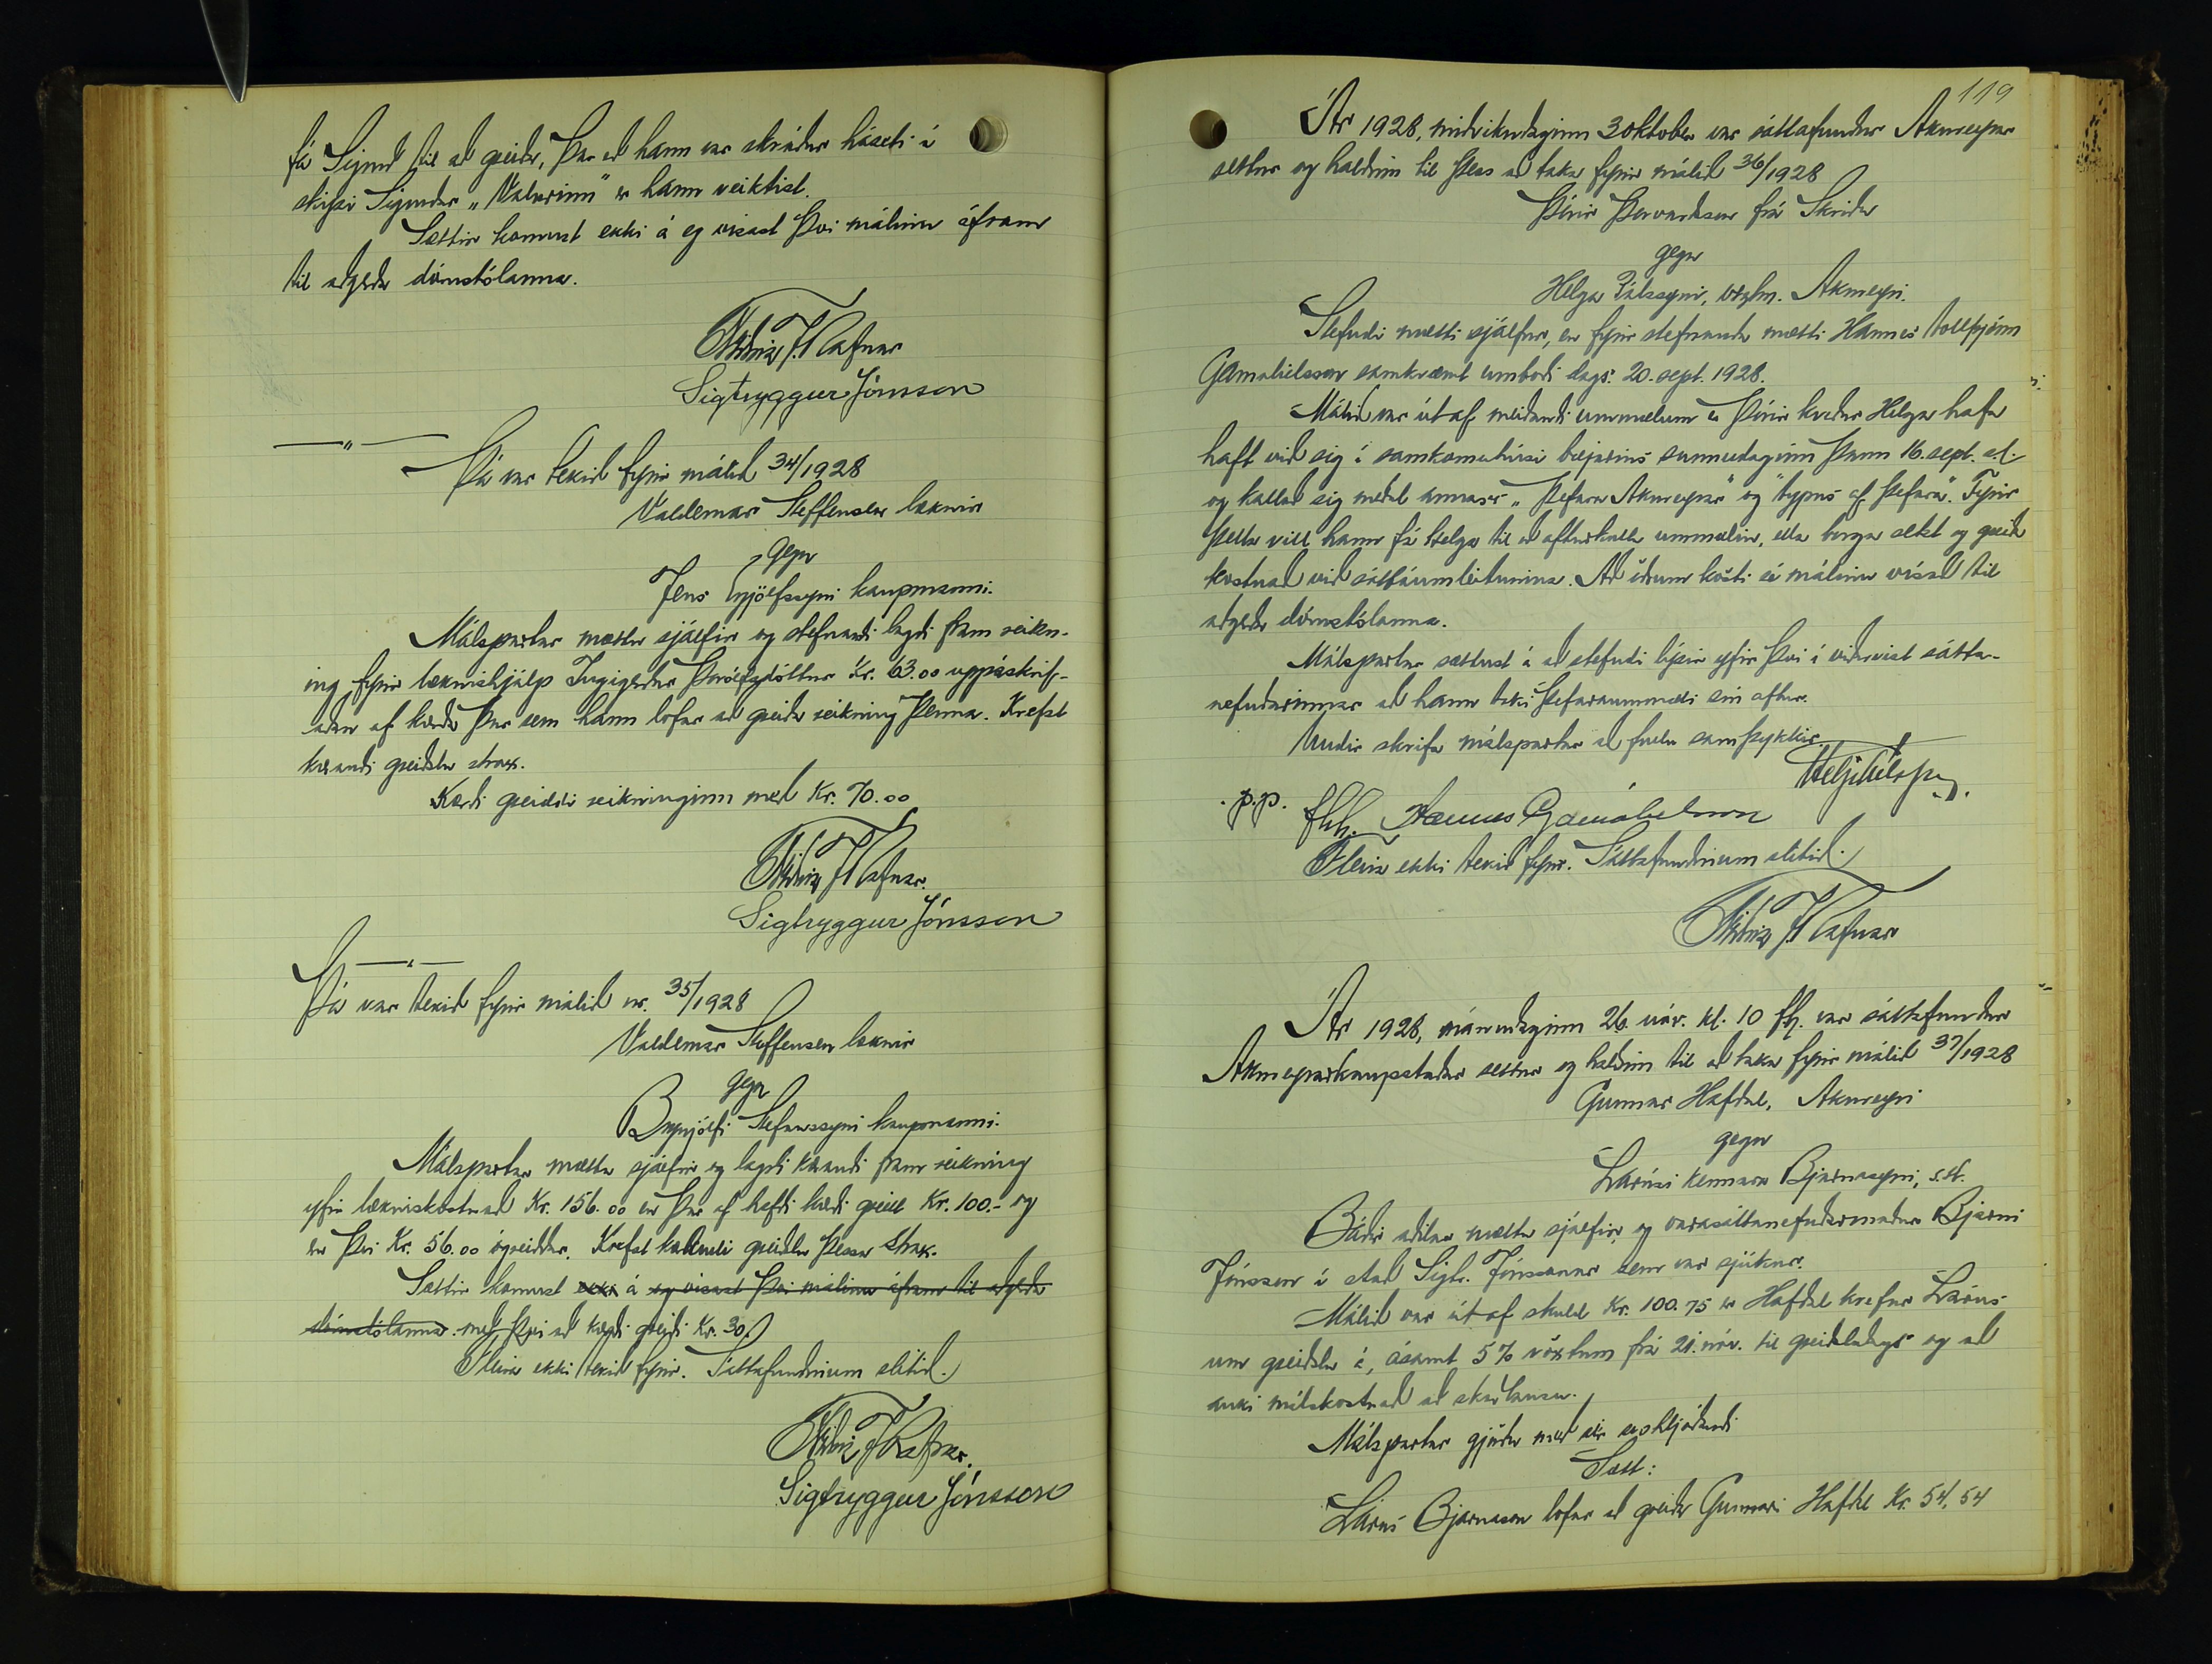 fá Sigurð til að greiða, þar eð hann var skráður háseti á
skipi Sigurðar „Valurinn" er hann veiktist.
Sættir komust ekki á og vísast því málinu áfram
til aðgerða dómstólanna.
Friðrik J. Rafnar
Sigtryggur Jónsson
— " —
Þá var tekið fyrir málið 34/1928
Valdemar Steffensen læknir
gegn
Jens Eyjólfssyni kaupmanni.
Málspartar mættu sjálfir og stefnandi lagði fram reikn-
ing fyrir læknishjálp Ingigerðar Þórólfsdóttur Kr. 63.00 uppáskrif-
aðan af kærða þar sem hann lofar að greiða reikning þenna. Krefst
kærandi greiðslu strax.
Kærði greiddi reikninginn með Kr. 70.00
Friðrik J. Rafnar.
Sigtryggur Jónsson
— " —
Þá var tekið fyrir málið nr. 35/1928
Valdemar Steffensen læknir
gegn
Brynjólfi Stefánssyni kaupmanni.
Málspartar mættu sjálfir og lagði kærandi fram reikning
yfir lækniskostnað Kr. 156.00 en þar af hefði kærði greitt Kr. 100.- og
er því Kr. 56.00 ógreiddar. Krefst kærandi greiðslu þessa strax.
Sættir komust ekki á og vísast því málinu áfram til aðgerða
dómstólanna. með því að kærði greiði Kr. 30.
Fleira ekki tekið fyrir. Sáttafundinum slitið.
Friðrik J. Rafnar.
Sigtryggur Jónsson
119
Ár 1928, miðvikudaginn 3 oktober var sáttafundur Akureyrar
settur og haldinn til þess að taka fyrir málið 36/1928
Þórir Þorvarðsson frá Skriðu
gegn
Helga Pálssyni, Akureyri.
Stefndi mætti sjálfur, en fyrir stefnanda mætti Hannes
Gamalielsson samkvæmt umboði dags. 20. sept. 1928.
Málið var út af meiðandi ummælum er Þórir kveður Helga hafa
haft við sig í samkomuhúsi bæjarins sunnudaginn þann 16. sept. s.l.
og kallað sig meðal annars „Þefara Akureyrar" og "typus af þefara". Fyrir
þetta vill hann fá Helga til að afturkalla ummælin, ella borga sekt og greiða
kostnað við sáttaumleitunina. Að öðrum kosti sé málinu vísað til
aðgerða dómstólanna.
Málspartar sættust á að stefndi lýsir yfir því í viðurvist sátta-
nefndarinnar að hann taki þefaraummæli sín aftur.
Undir skrifa málspartar að fuldu samþykkir.
Helgi Pálsson.
p.p.
Hannes Gamalielsson
Fleira ekki tekið fyrir. Sáttafundinum slitið.
Friðrik J. Rafnar
Ár 1928, mánudaginn 26. nóv. kl. 10 fh. var sáttafundur
Akureyrarkaupstaðar settur og haldinn til að taka fyrir málið 37/1928
Gunnar Hafdal, Akureyri
gegn
Lárusi kennara Bjarnasyni, s.st.
Báðir aðilar mættu sjálfir, og varasáttanefndarmaður Bjarni
Jónsson í stað Sigtr. Jónssonar sem var sjúkur.
Málið var út af skuld Kr. 100.75 er Hafdal krefur Lárus
um greiðslu á, ásamt 5% vöxtum frá 21. nóv. til greiðsludags og að
auki málskostnað að skaðlausu.
Málspartar gjörðu með sér svohljóðandi
Sátt:
Lárus Bjarnason lofar að greiða Gunnari Hafdal Kr. 54,54